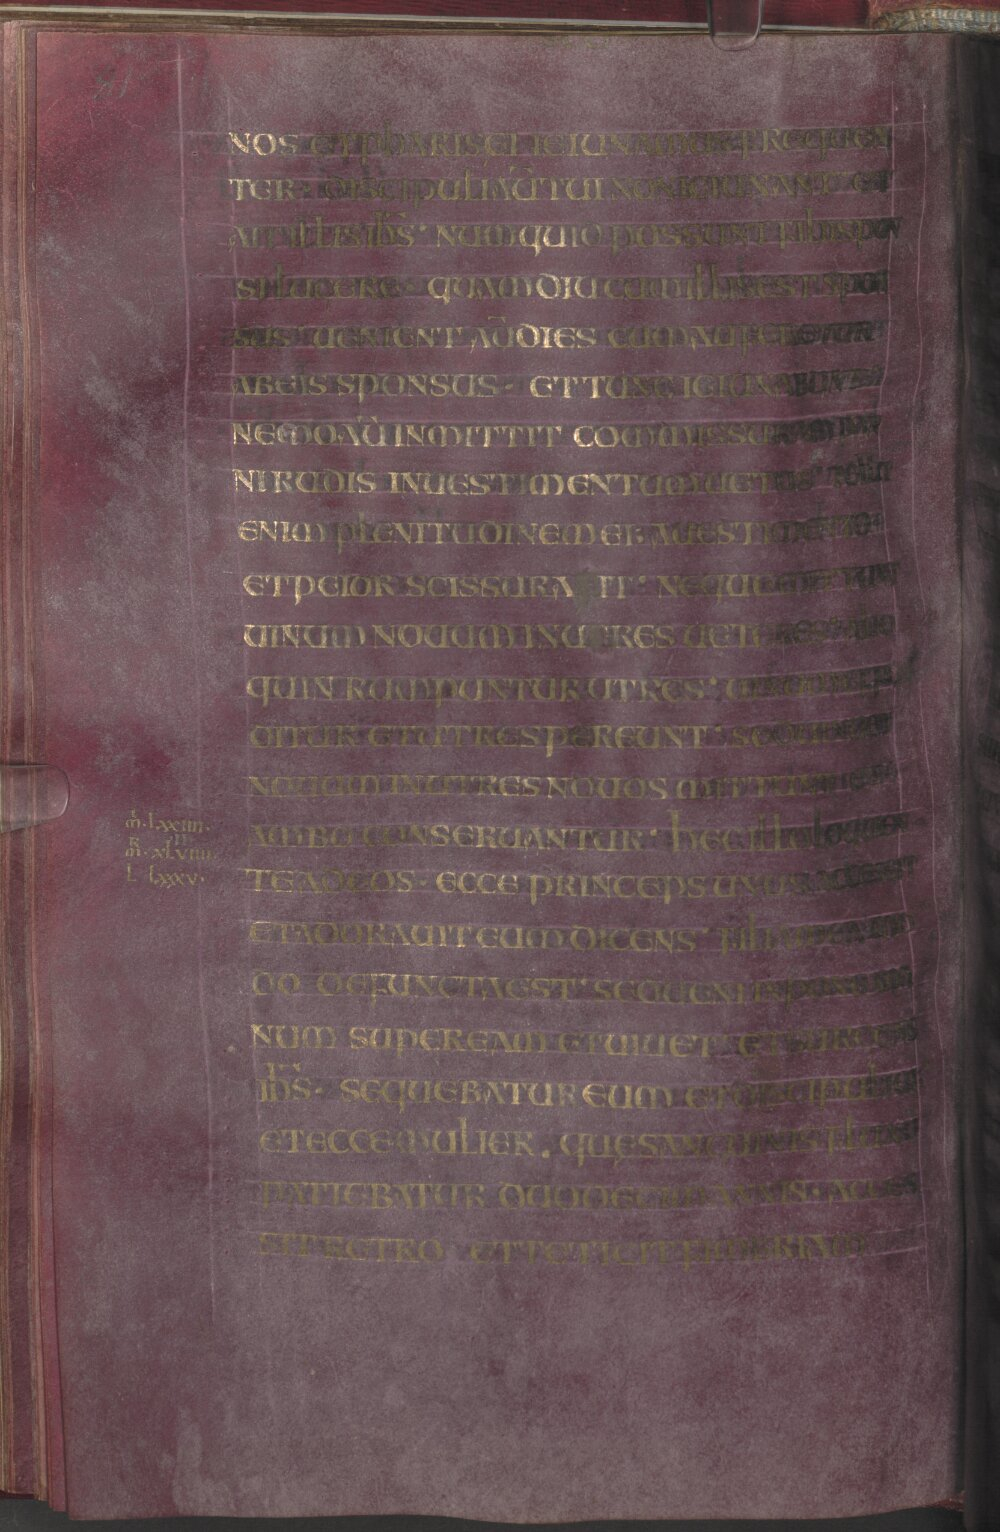 NOS ET PHARISEI IEIUNAMUS FREQUEN
TER· DISCIPULI AU̅ TUI NON IEIUNANT· ET
AIT ILLIS IH̅S· NUMQUID POSSUNT FILII SPON
SI LUGERE· QUAMDIU CUM ILLIS EST SPON
SUS UENIENT AU̅ DIES CUM AUFERETUR
AB EIS SPONSUS· ET TUNC IEIUNABUNT
NEMO AU̅ INMITTIT COMMISSURAM PAN
NI RUDIS IN UESTIMENTUM UETUS· TOLLIT
ENIM PLENITUDINEM EI; A UESTIMENTO·
ET PEIOR SCISSURA FIT· NEQUE MITTUNT
UINUM NOUUM IN UTRES UETERES· ALIO
QUIN RUMPUNTUR UTRES· UINUM EF
DITUR ET UTRES PEREUNT· SED UINUM
NOUUM IN UTRES NOUOS MITTUNT· ET
AMBO CONSERUANTUR· HEC ILLO LOQUEN
M̅. LXXIIII.
R̅. XLVIIII
L LXXXV.
TE AD EOS· ECCE PRINCEPS UNUS ACCESSIT
ET ADORAUIT EUM DICENS· FILIA MEA MO
DO DEFUNCTA EST· SED UENI IMPONE MA
NUM SUPER EAM ET UIUET· ET SURGENS
IH̅S· SEQUEBATUR EUM ET DISCIPULI EI;
ET ECCE MULIER. QUE SANGUINIS FLUXU
PATIEBATUR DUODECIM ANNIS· ACCES
SIT RETRO ET TETIGIT FIMBRIAM